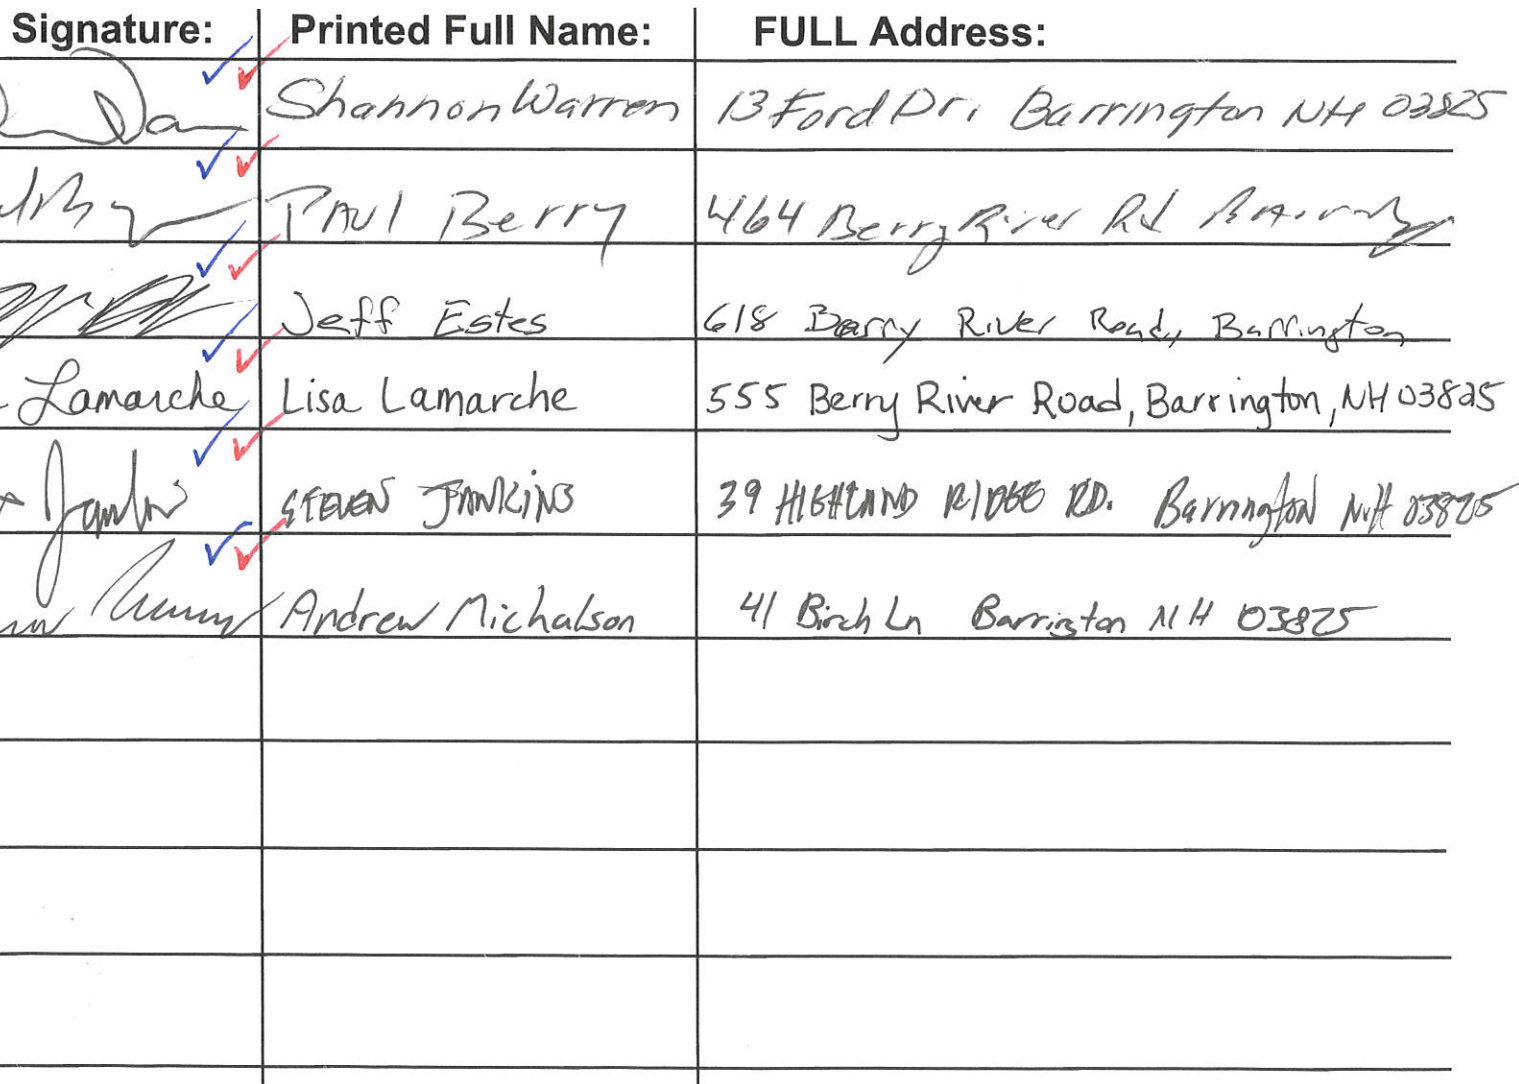 Signature: Printed Full Name: FULL Address:
Shannon Warren 13 Ford Dr. Barrington NH 03825
PAUL Berry 464 Berry River Rd Barrington
Jeff Estes 618 Berry River Road, Barrington
Lamarche Lisa Lamarche 555 Berry River Road, Barrington, NH 03825
STEVEN JANKINS 39 HIGHLAND RIDGE RD. Barrington N.H 03825
Andrew Michalson 41 Birch Ln Barrington NH 03825